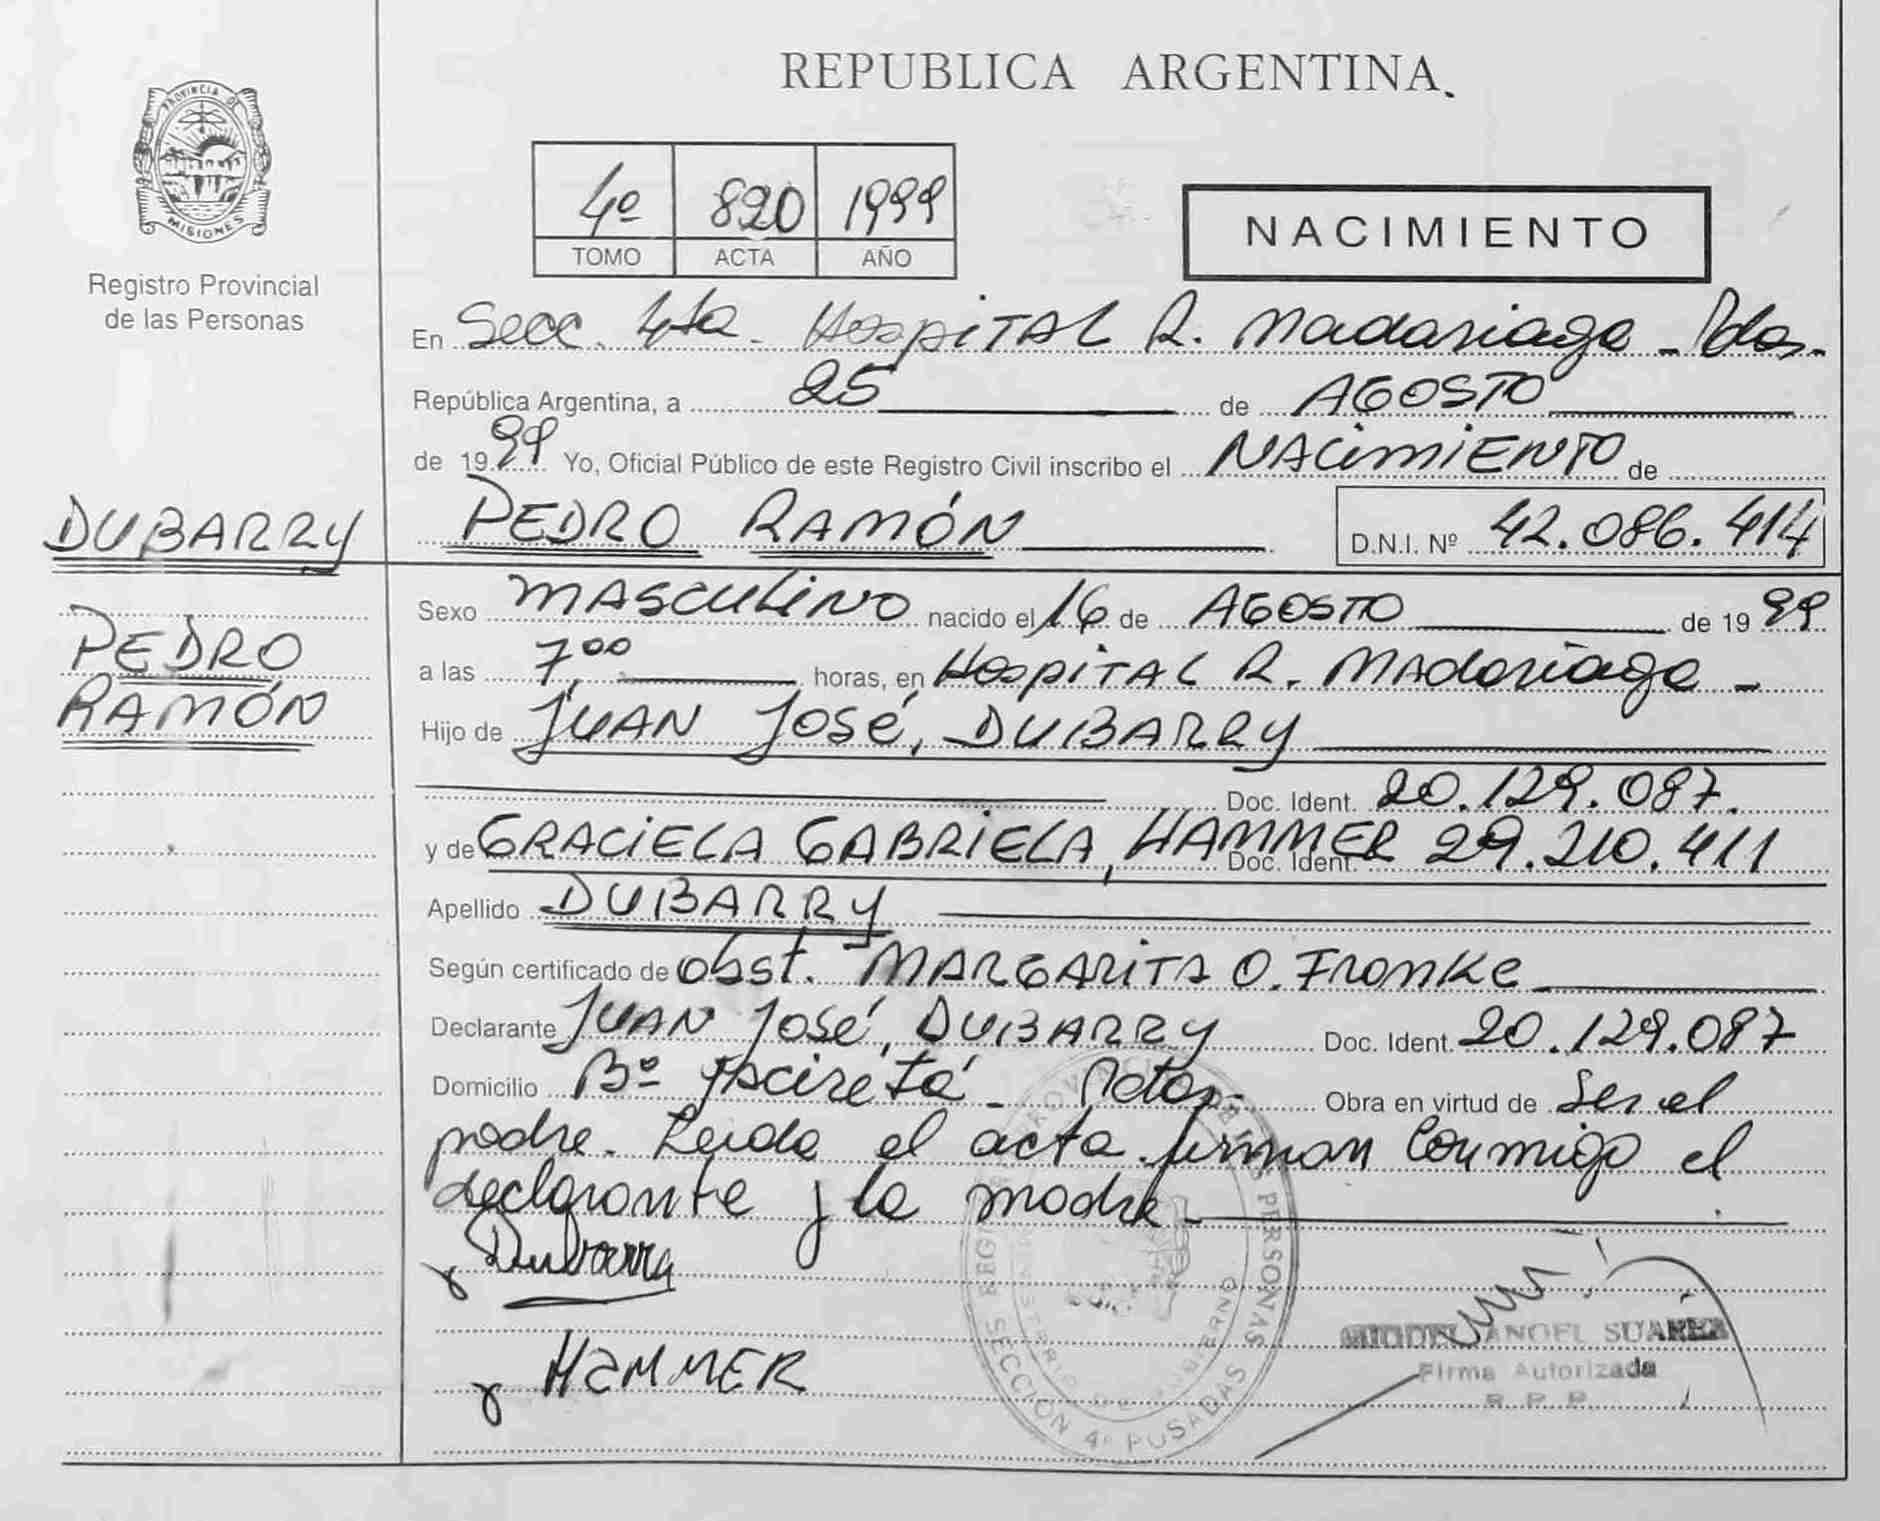 REPUBLICA ARGENTINA.
PROVINCIA DE
MISIONES
Registro Provincial
de las Personas
4º 820 1999
TOMO ACTA AÑO
NACIMIENTO
En Secc. 4ta. Hospital R. Madariaga - Pdas.
República Argentina, a 25 de AGOSTO
de 1999 Yo, Oficial Público de este Registro Civil inscribo el NACIMIENTO de
DUBARRY PEDRO RAMÓN D.N.I. Nº 42.086.414
PEDRO
RAMÓN
Sexo MASCULINO nacido el 16 de AGOSTO de 1999
a las 7,00 horas, en Hospital R. Madariaga -
Hijo de JUAN JOSÉ, DUBARRY
Doc. Ident. 20.129.087.
y de GRACIELA GABRIELA, HAMMER Doc. Ident. 29.210.411
Apellido DUBARRY
Según certificado de Obst. MARGARITA O. Fromke
Declarante JUAN JOSÉ, DUBARRY Doc. Ident. 20.129.087
Domicilio Bº Yacireta - Pdas. Obra en virtud de Ser el
padre. Leida el acta firman conmigo el
declarante y la madre
Dubarry
HAMMER
REGISTRO PROVINCIAL DE LAS PERSONAS
MINISTERIO DE GOBIERNO
SECCION 4º POSADAS
MIGUEL ANGEL SUAREZ
Firma Autorizada
R.P.P.